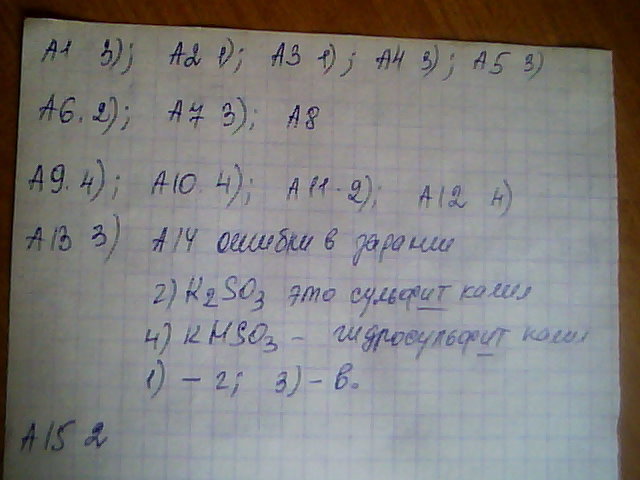 А1 3); А2 1); А3 1); А4 3); А5 3)
А6. 2); А7 3); А8
А9. 4); А10. 4); А11. 2); А12 4)
А13 3) А14 ошибки в задании
2) K2SO3 это сульфит калия
4) KHSO3 – гидросульфит калия
1) – г; 3) – в.
А15 2